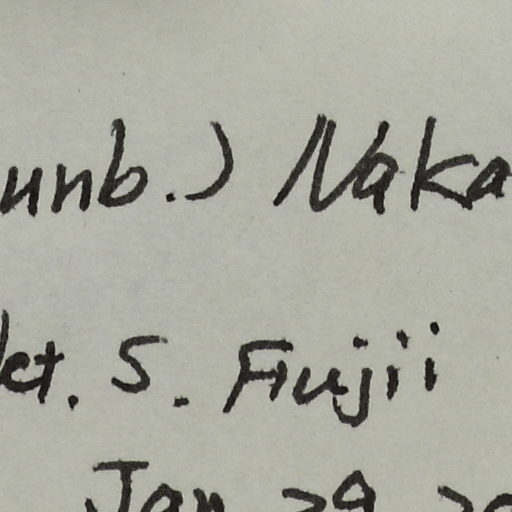 unb.) Naka
det. S. Fujii
Jan 29 20